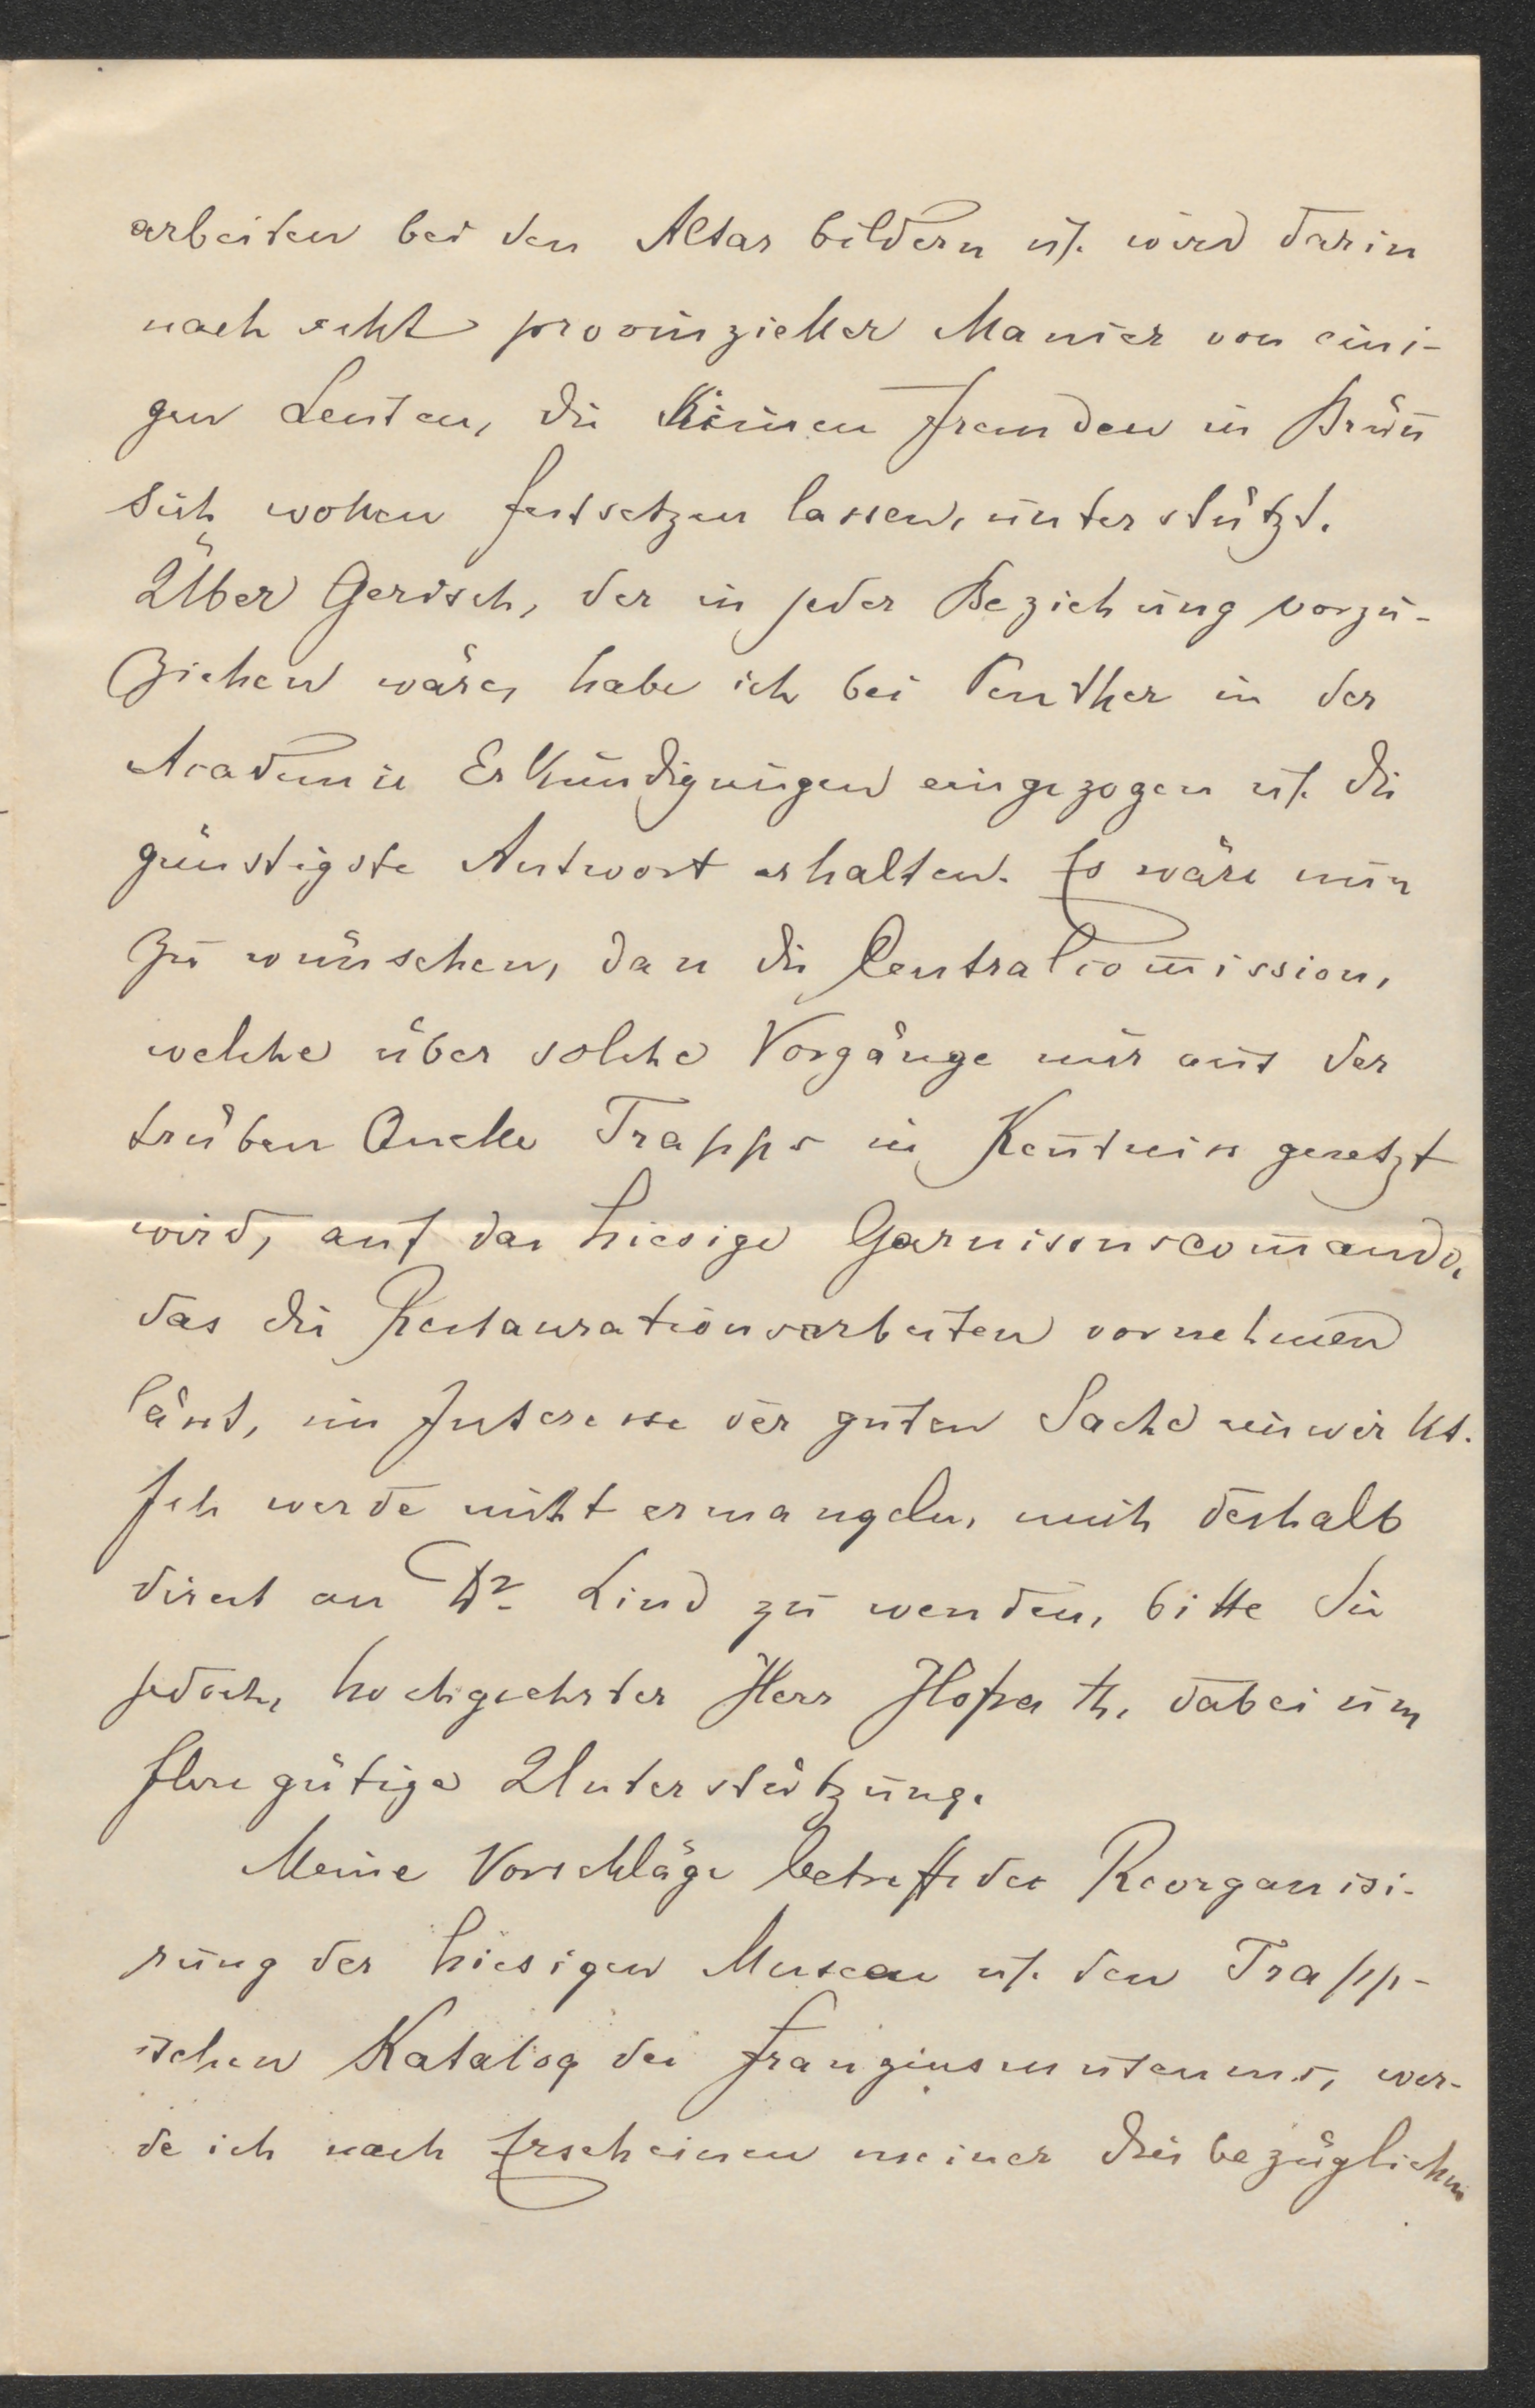 arbeiten bei den Altarbildern u/. wird darin
nach echt provinzieller Manier von eini-
gen Leuten, die keinen Fremden in Brün̄
sich wollen festsetzen lassen, unterstützt.
Über Gerisch, der in jeder Beziehung vorzu-
ziehen wäre, habe ich bei Penther in der
Academie Erkundigungen eingezogen u/. die
günstigste Antwort erhalten. Es wäre nun
zu wünschen, dass die Centralcom̄ission,
welche über solche Vorgänge nur aus der
trüben Quelle Trapps in Ken̄tniss gesetzt
wird, auf das hiesige Garnisonscom̄ando,
das die Restaurationsarbeiten vornehmen
lässt, im Interesse der guten Sache einwirkt.
Ich werde nicht ermangeln, mich deshalb
direct an Dr. Lind zu wenden, bitte Sie
jedoch, hochgeehrter Herr Hofrath, dabei um
Ihre gütige Unterstützung.
Meine Vorschläge betreffs der Reorganisi-
rung der hiesigen Museen u/. den Trapp-
ischen Katalog des Franzensmuseums, wer-
de ich nach Erscheinen meiner diesbezüglichen